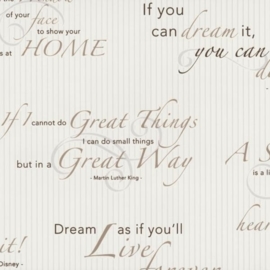 of your face
to show your
s at HOME
If you
can dream it,
you can
do
If I cannot do Great Things
I can do small things
but in a Great Way
- Martin Luther King -
A S
is a li
hear
Dream as if you'll
Live
forever
it!
Disney -